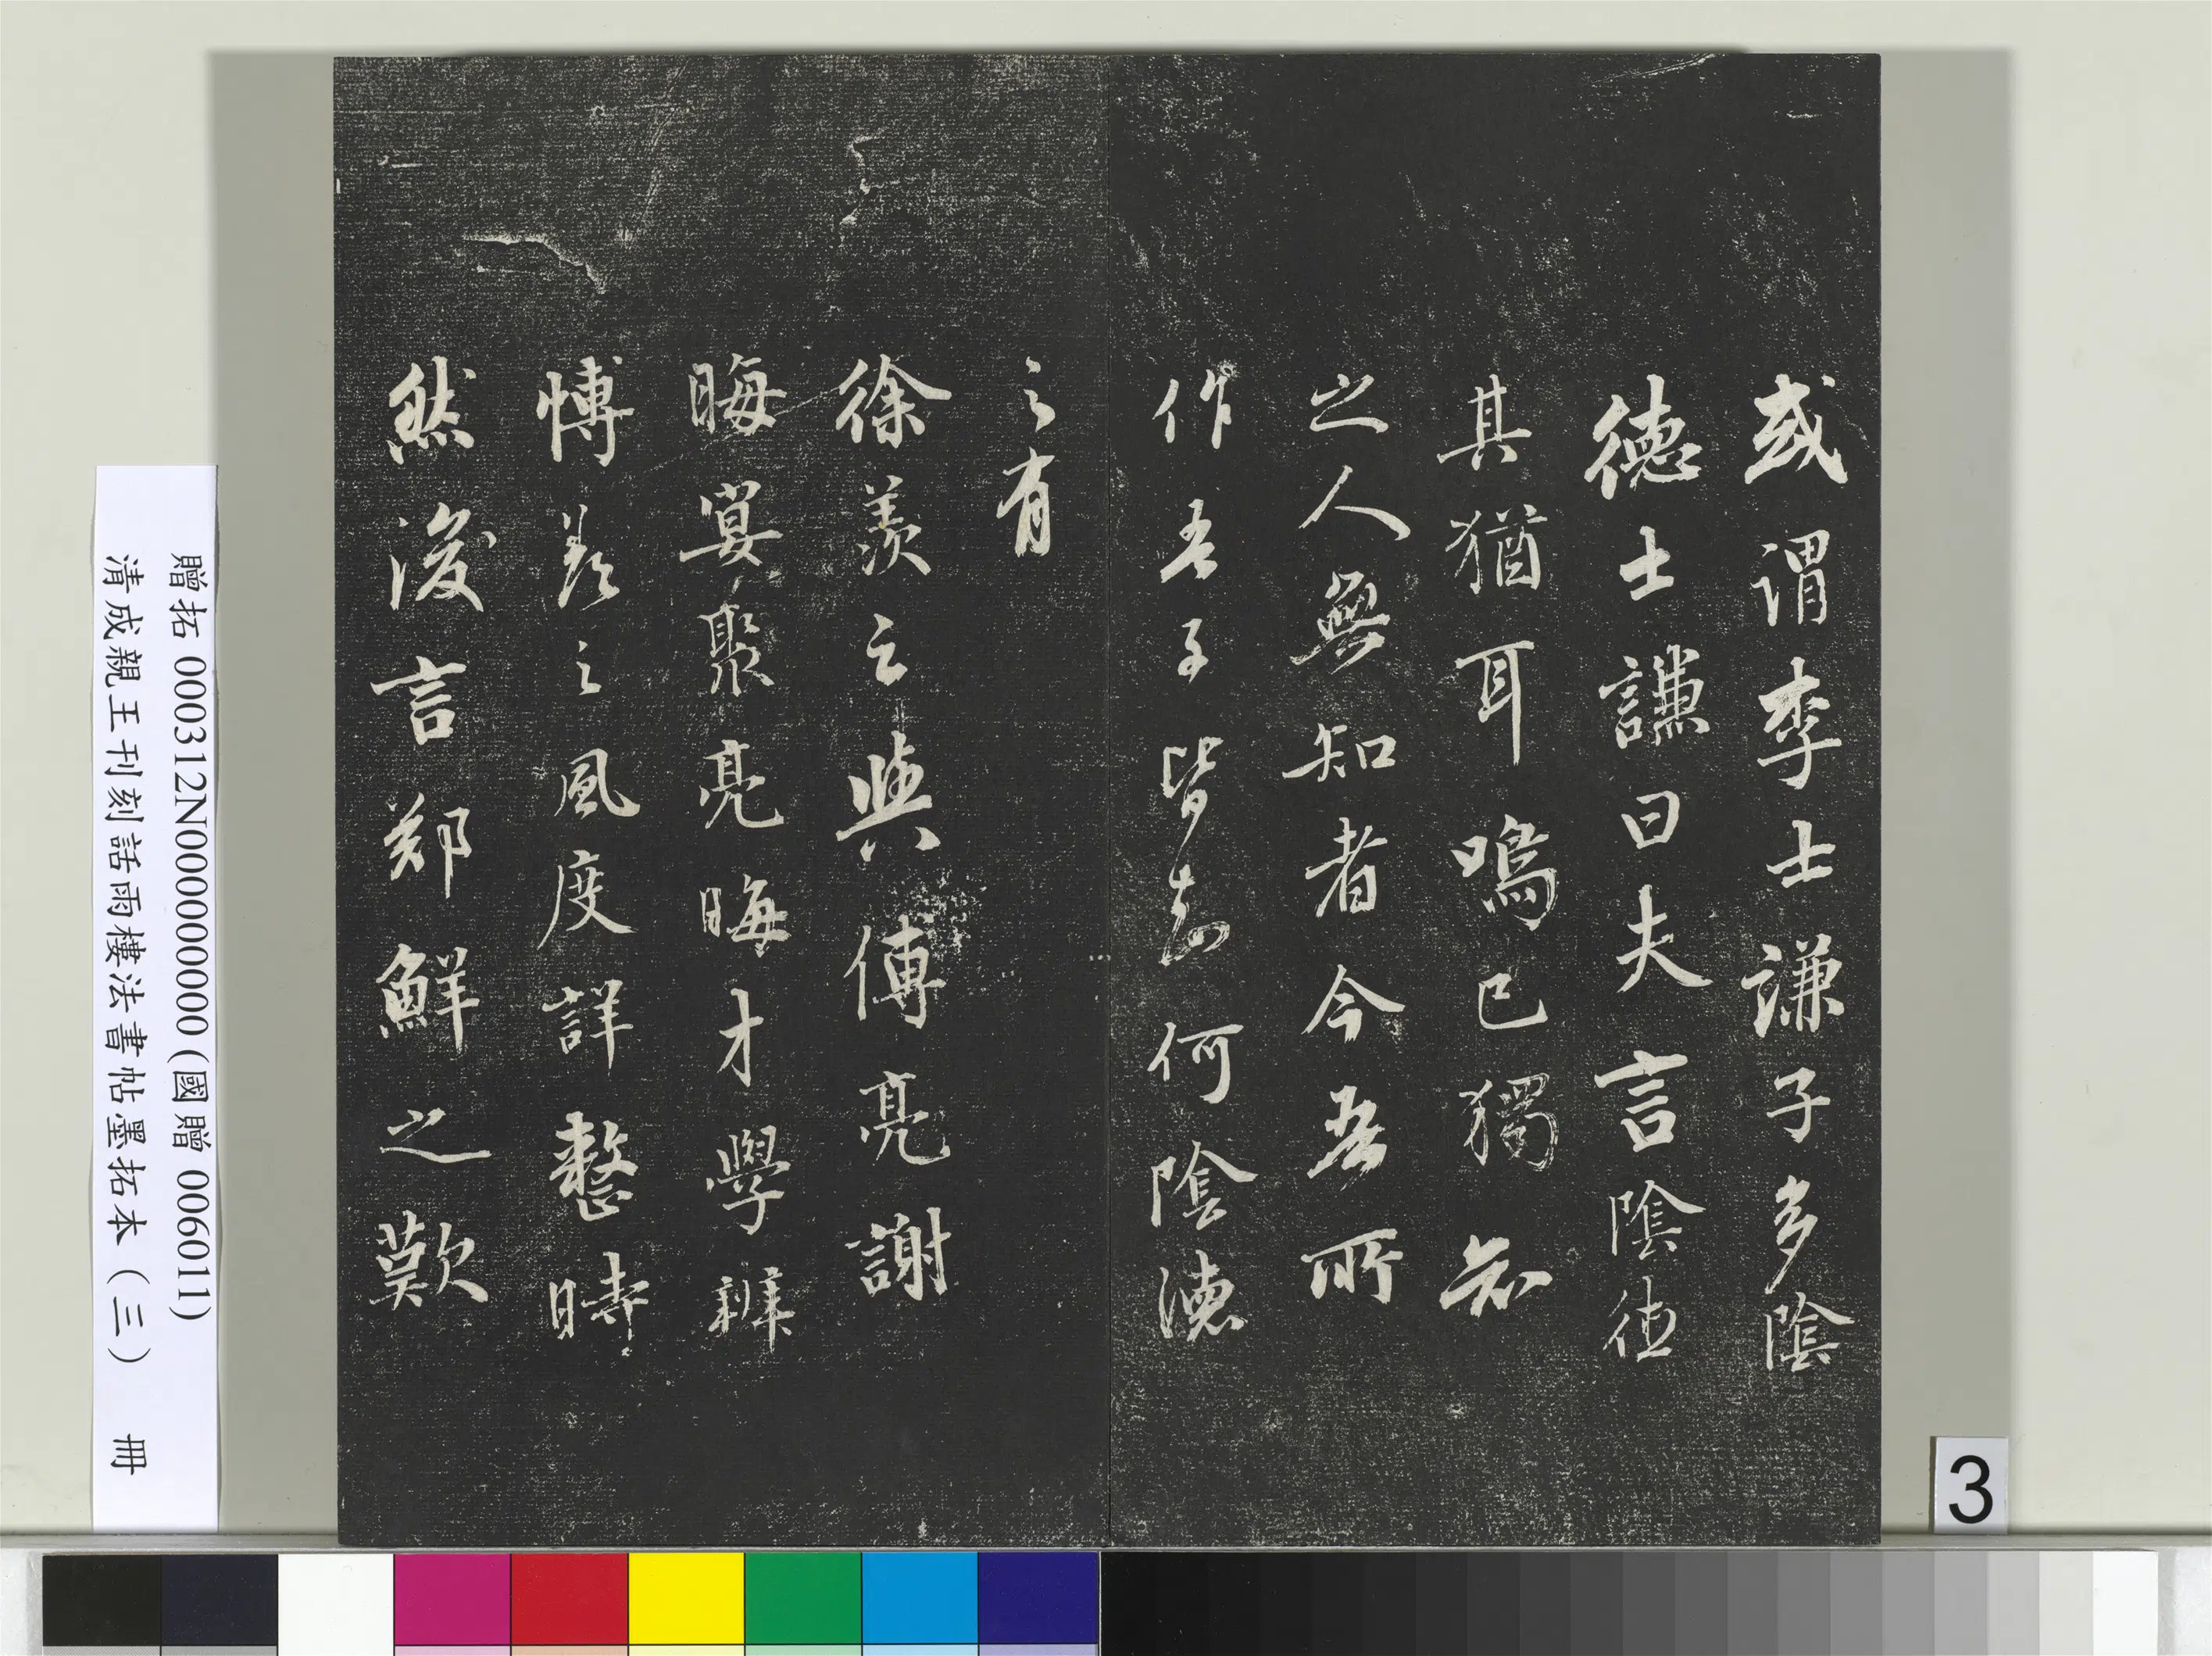 或謂李士謙子多陰
德士謙曰夫言陰德
其猶耳鳴己獨知
之人無知者今吾所
作吾子皆知何陰德
之有
徐羨之與傅亮謝
晦宴聚亮晦才學辯
博羨之風度詳整時
然後言鄭鮮之歎
贈拓 000312N000000000 (國贈 006011)
清成親王刊刻話雨樓法書帖墨拓本（三） 冊
3